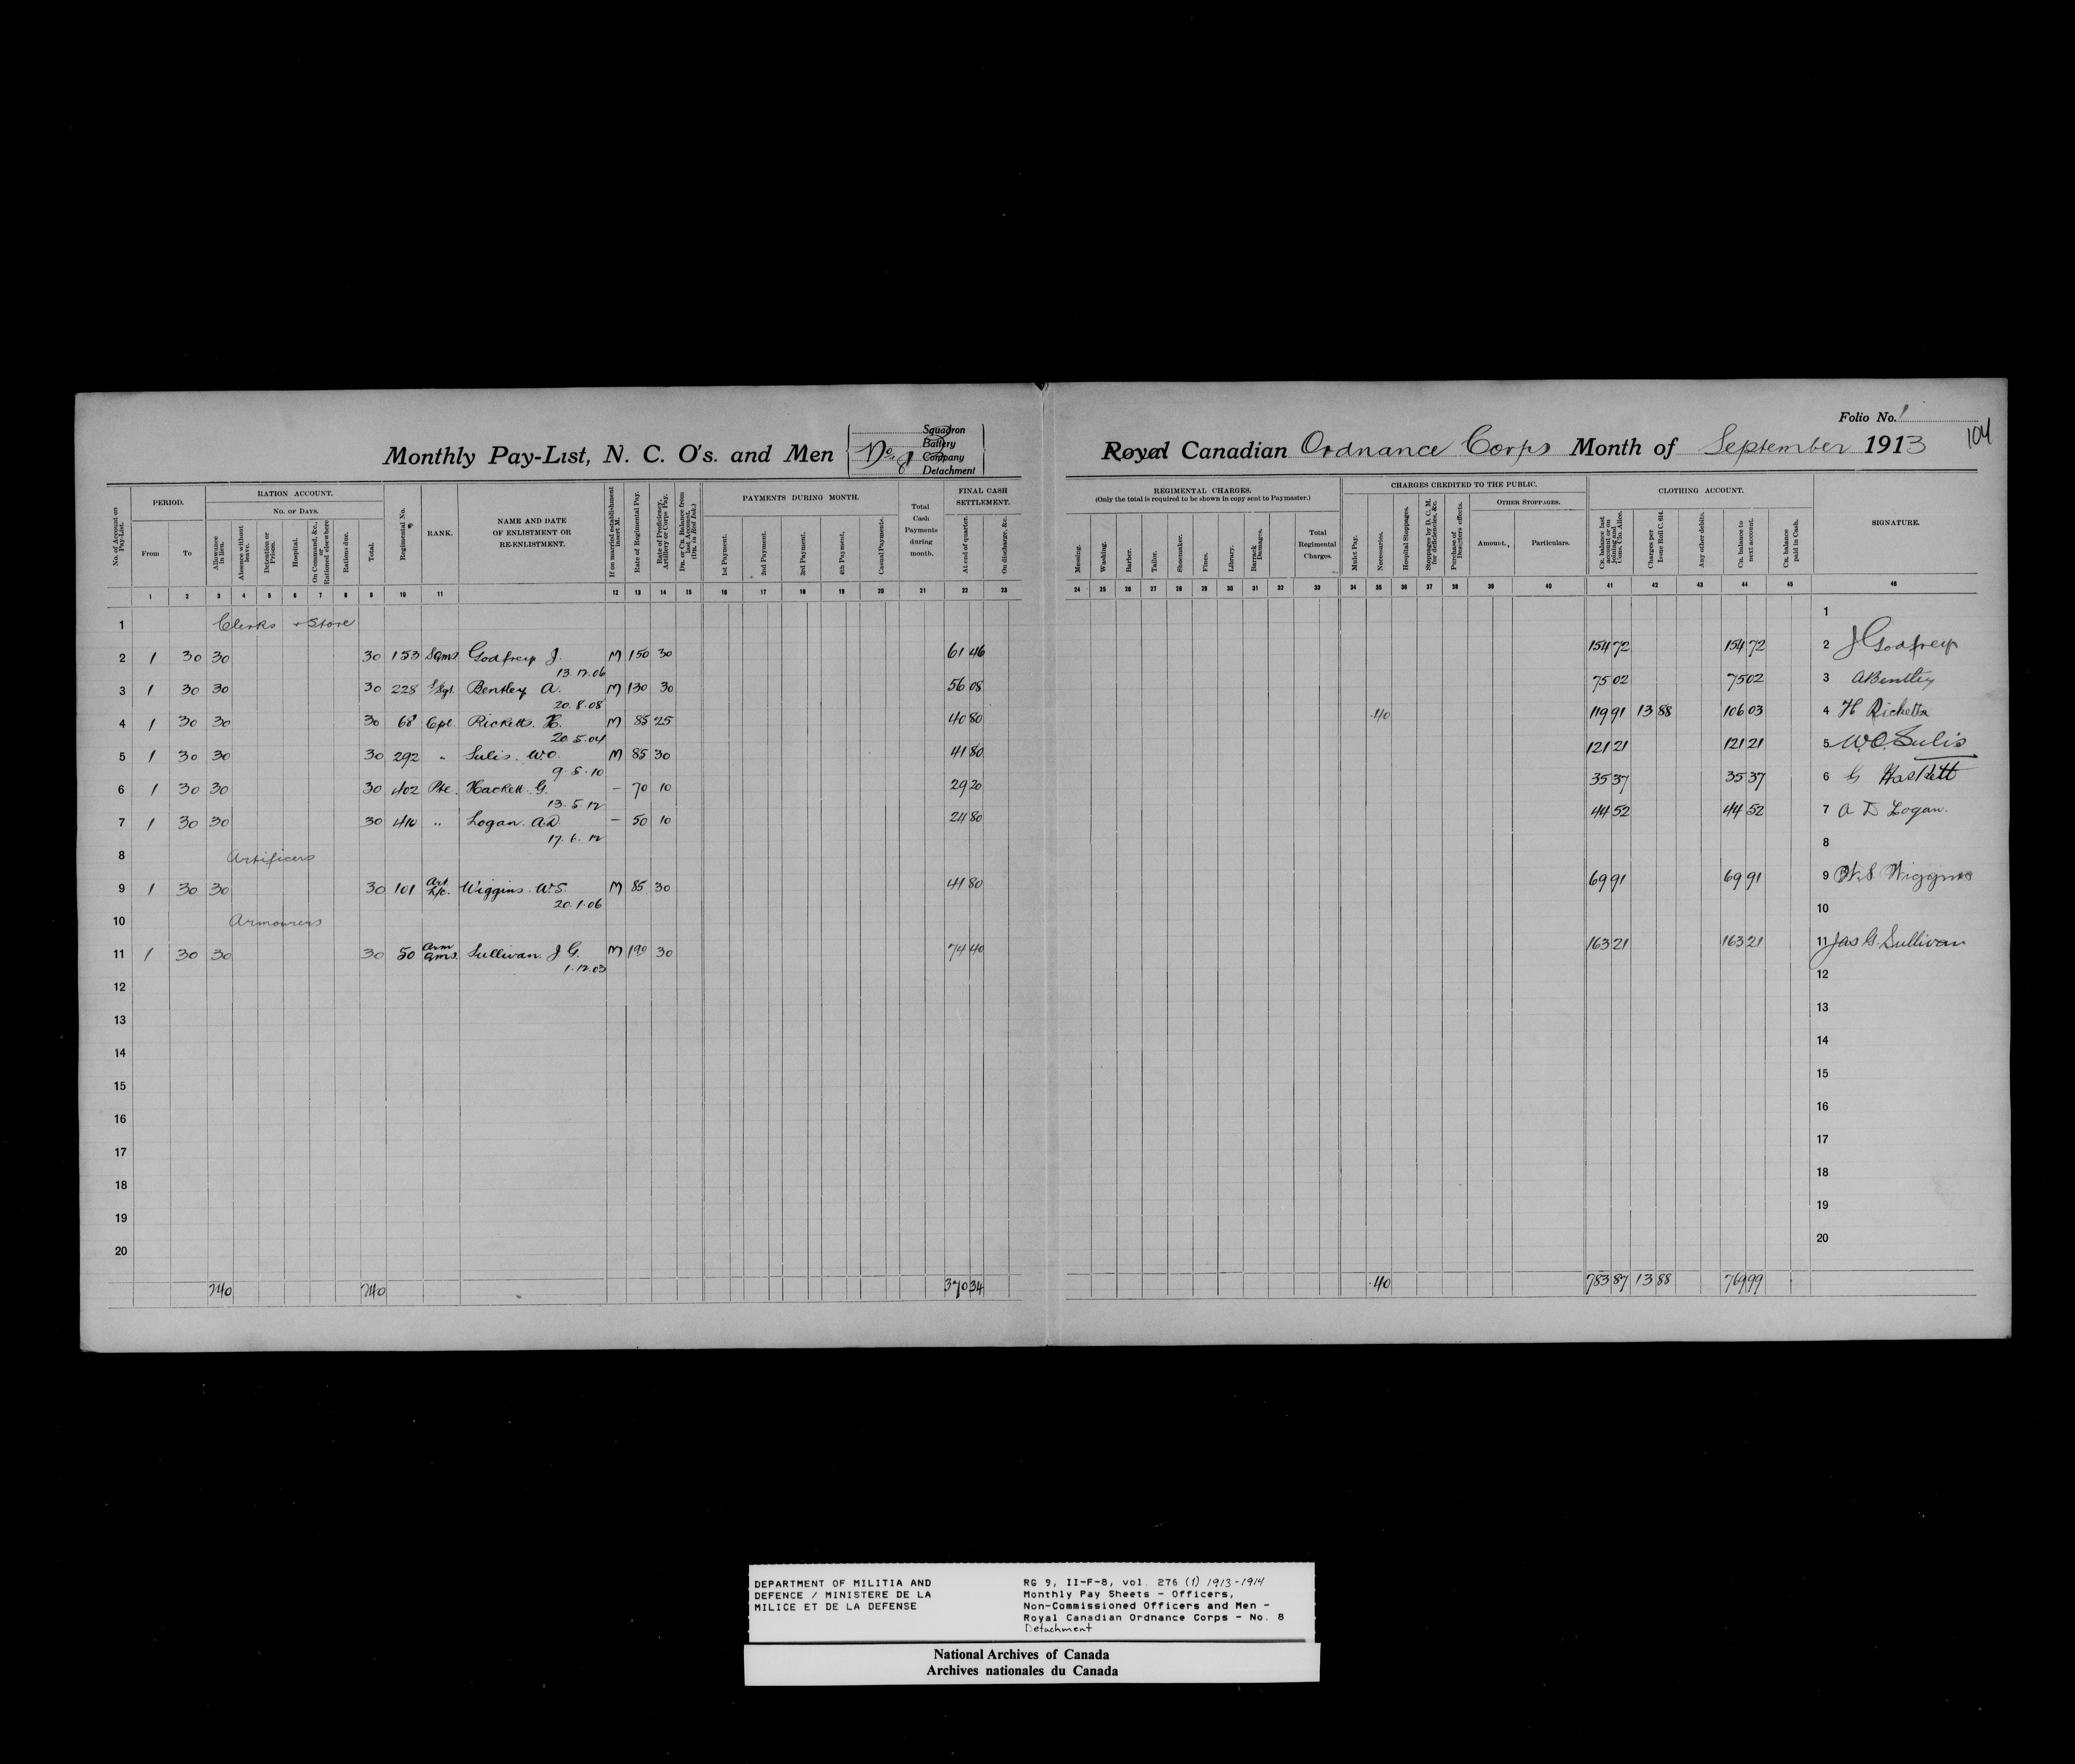 Folio No. 1
104
Monthly Pay-List, N. C. O's. and Men No. 8 Squadron Battery Company Detachment
Royal Canadian Ordnance Corps Month of September 1913
No. of Account on Pay-List.
PERIOD.
From
To
RATION ACCOUNT.
No. of Days.
Allowance in lieu.
Absence without leave.
Detention or Prison.
Hospital.
On Command, &c., or Rationed elsewhere
Rations due.
Total.
Regimental No.
RANK.
NAME AND DATE OF ENLISTMENT OR RE-ENLISTMENT.
If on married establishment insert M.
Rate of Regimental Pay.
Rate of Proficiency, Artillery or Corps Pay.
Dr. or Cr. Balance from last Account. (Dr. in Red Ink.)
PAYMENTS DURING MONTH.
1st Payment.
2nd Payment.
3rd Payment.
4th Payment.
Casual Payments.
Total Cash Payments during month.
FINAL CASH SETTLEMENT.
At end of quarter.
On discharge, &c.
REGIMENTAL CHARGES.
(Only the total is required to be shown in copy sent to Paymaster.)
Messing.
Washing.
Barber.
Tailor.
Shoemaker.
Fines.
Library.
Barrack Damages.
Total Regimental Charges.
CHARGES CREDITED TO THE PUBLIC.
Mulct Pay.
Necessaries.
Hospital Stoppages.
Stoppages by D. C. M. for deficiencies, &c.
Purchase of Deserters effects.
OTHER STOPPAGES.
Amount.
Particulars.
CLOTHING ACCOUNT.
Cr. balance for last account or on joining and Cons. Clo. Allce.
Charges per Issue Roll C. 614.
Any other debits.
Cr. balance to next account.
Cr. balance paid in Cash.
SIGNATURE.
1 2 3 4 5 6 7 8 9 10 11 12 13 14 15 16 17 18 19 20 21 22 23 24 25 26 27 28 29 30 31 32 33 34 35 36 37 38 39 40 41 42 43 44 45 46
1 Clerks & Store 1
2 1 30 30 30 153 Sqms Godfrey J. M 150 30 61 46 154 72 154 72 2 J Godfrey
13.12.06
3 1 30 30 30 228 S/Sgt. Bentley A. M 130 30 56 08 75 02 75 02 3 A Bentley
20.8.08
4 1 30 30 30 68 Cpl. Ricketts. H. M 85 25 40 80 .40 119 91 13 88 106 03 4 H Ricketts
20.5.04
5 1 30 30 30 292 " Sulis. W.O. M 85 30 41 80 121 21 121 21 5 W.O. Sulis
9.5.10
6 1 30 30 30 402 Pte. Hackett. G. – 70 10 29 20 35 37 35 37 6 G Haskett
13.5.12
7 1 30 30 30 410 " Logan. A.D. – 50 10 24 80 44 52 44 52 7 A D Logan.
17.6.12
8 Artificers 8
9 1 30 30 30 101 Art. L/c. Wiggins. W.S. M 85 30 41 80 69 91 69 91 9 W.S Wiggins
20.1.06
10 Armourers 10
11 1 30 30 30 50 Arm Qms. Sullivan. J G. M 190 30 74 40 163 21 163 21 11 Jas G. Sullivan
1.12.03
12 12
13 13
14 14
15 15
16 16
17 17
18 18
19 19
20 20
240 240 370 34 .40 783 87 13 88 769 99
DEPARTMENT OF MILITIA AND
DEFENCE / MINISTERE DE LA
MILICE ET DE LA DEFENSE
RG 9, II-F-8, vol. 276 (1) 1913-1914
Monthly Pay Sheets - Officers,
Non-Commissioned Officers and Men -
Royal Canadian Ordnance Corps - No. 8
Detachment
National Archives of Canada
Archives nationales du Canada